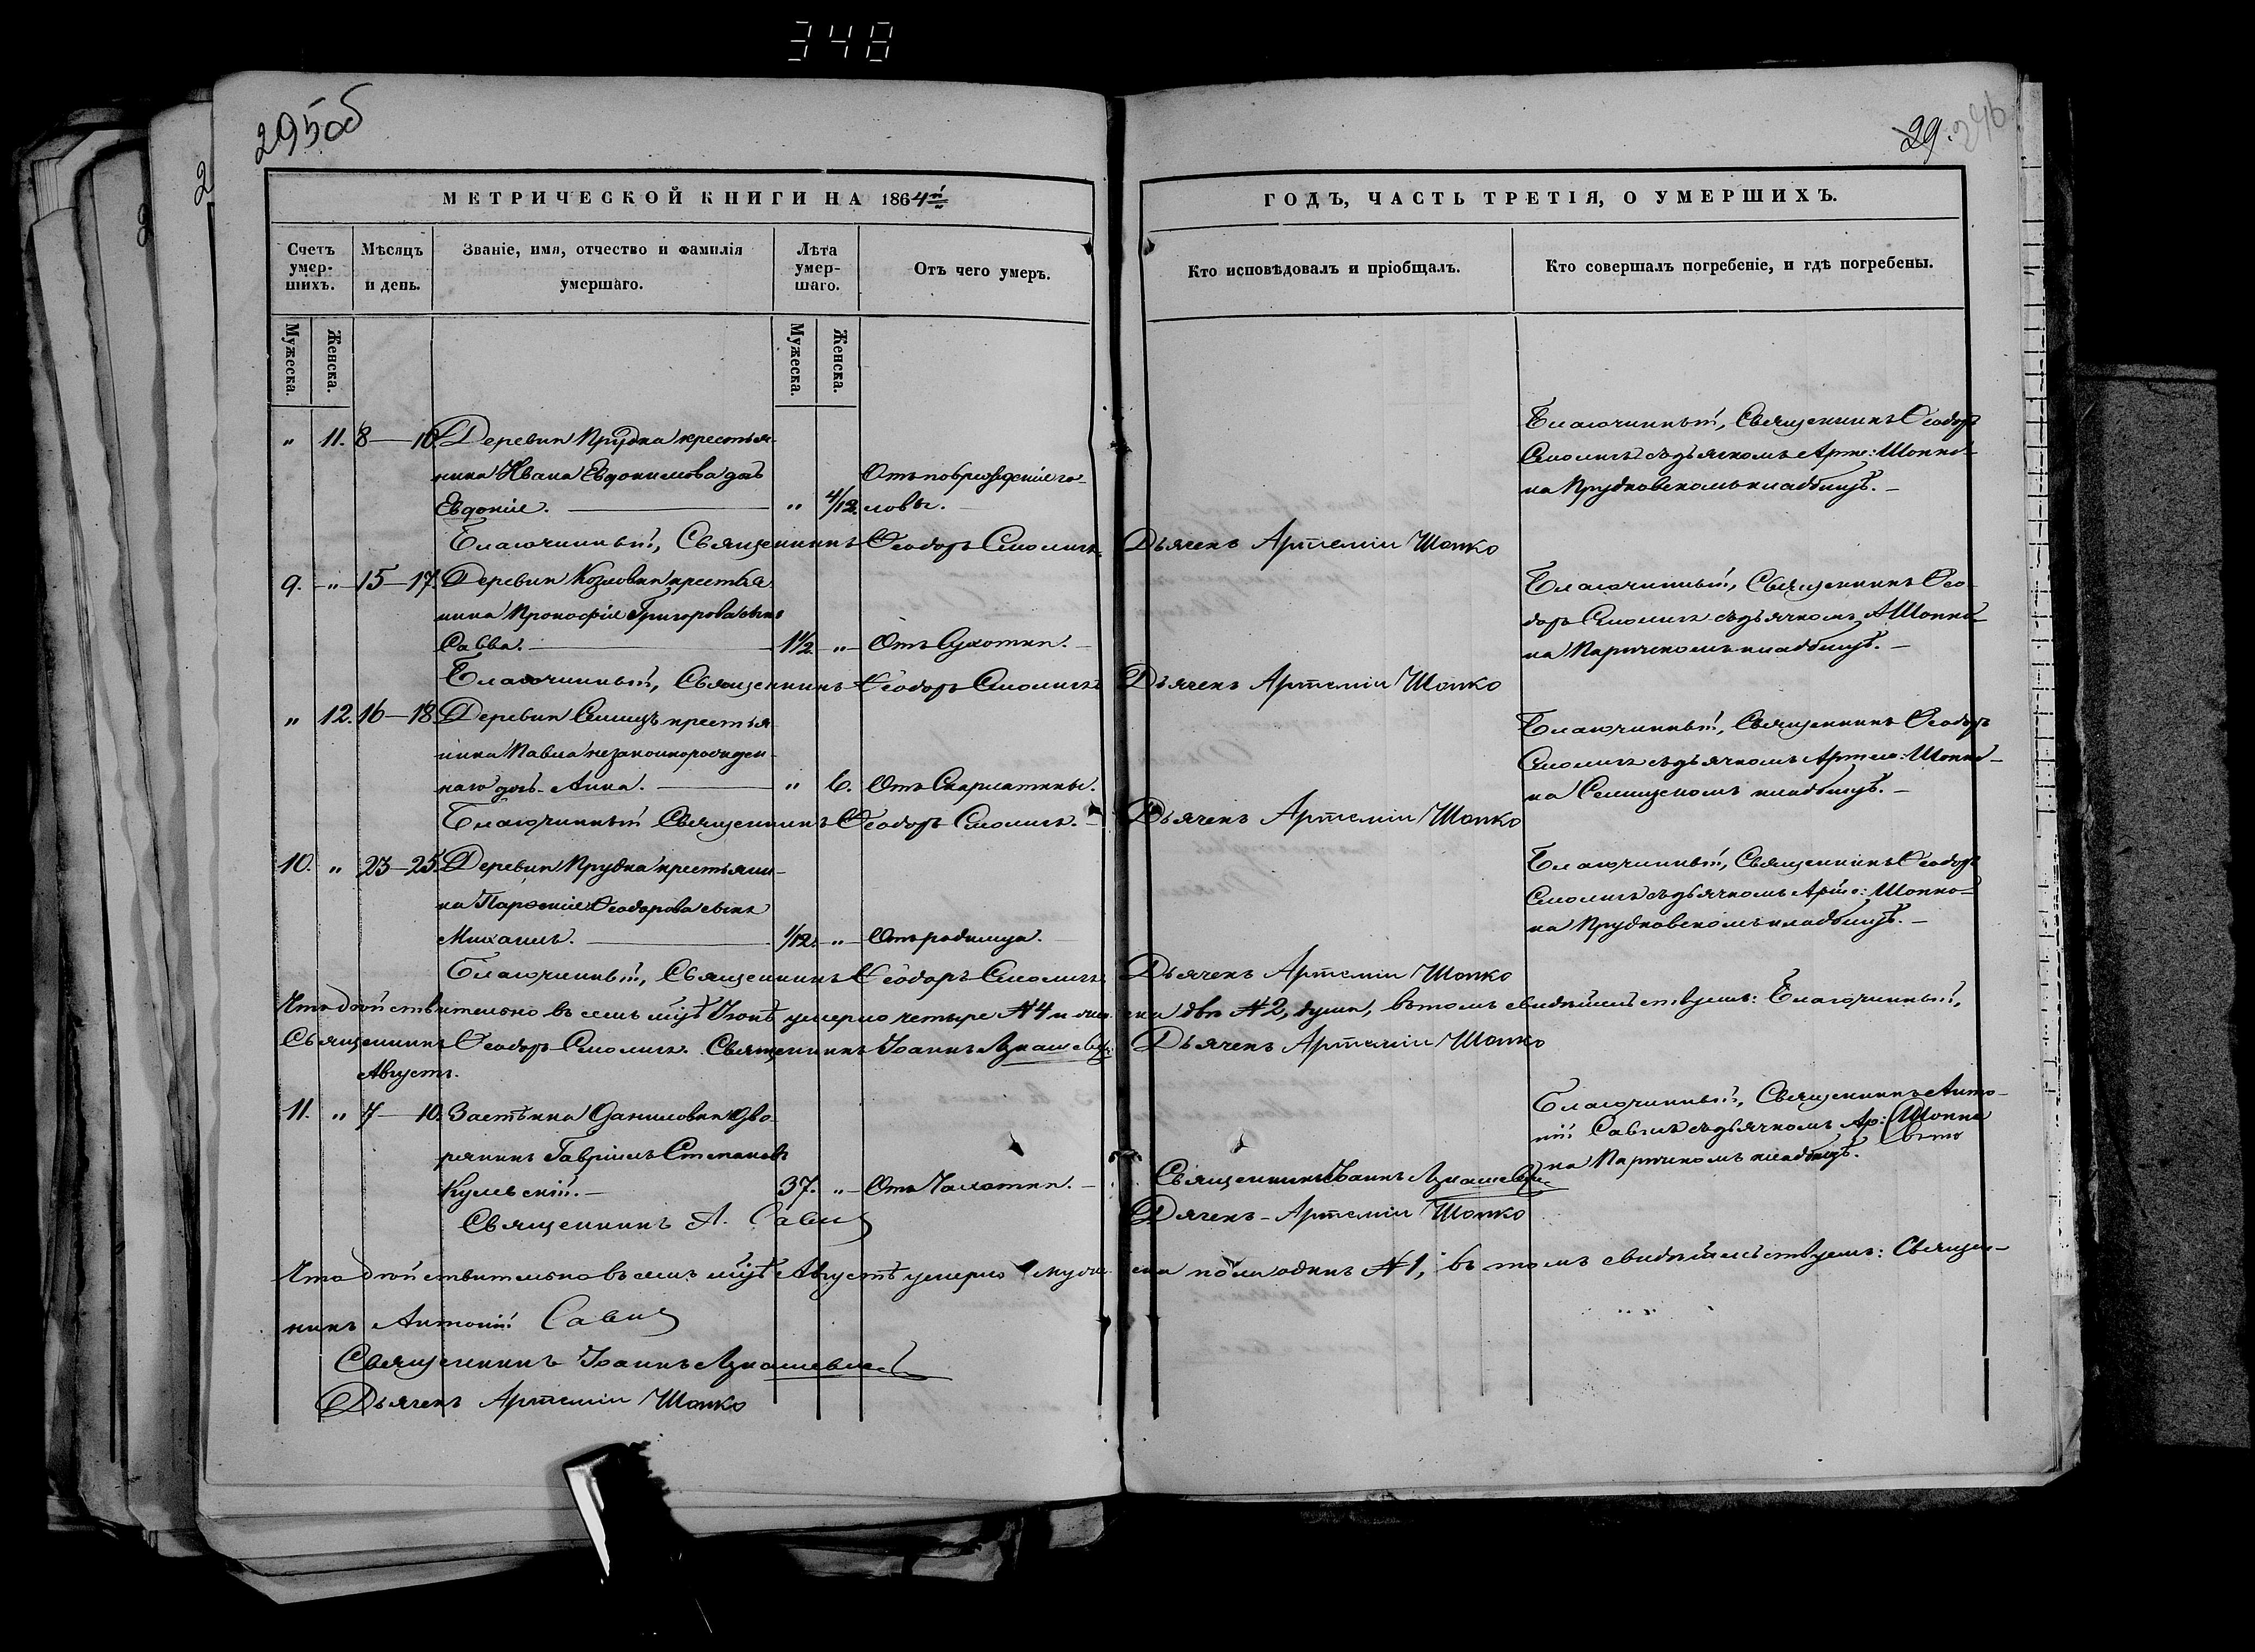 348
295об
29. 296
МЕТРИЧЕСКОЙ КНИГИ НА 1864й
ГОДЪ, ЧАСТЬ ТРЕТІЯ, О УМЕРШИХЪ.
Счетъ умер- шихъ.
Мѣсяцъ и день.
Званіе, имя, отчество и фамилія умершаго.
Лѣта умер- шаго.
Отъ чего умеръ.
Кто исповѣдовалъ и пріобщалъ.
Кто совершалъ погребеніе, и гдѣ погребены.
Мужеска. Женска. Мужеска. Женска.
„ 11. 8—10. Деревни Прудка крестья-
нина Ивана Евдокимова дочь
Евдокія. — „ 4/12. Отъ поврежденіе го-
ловы.
Благочинный, Священникъ Ѳеодоръ
Смоличъ съ дьячкомъ Арте: Шопко-
на Прудковскомъ кладбищѣ. —
Благочинный, Священникъ Ѳеодоръ Смоличъ. Дьячекъ Артемій Шопко
9. „ 15—17. Деревни Козловки крестья-
нина Прокофія Григорова сынъ
Савва. — 1 1/2. „ Отъ Сухотки. —
Благочинный, Священникъ Ѳео-
доръ Смоличъ съ дьячкомъ А Шопко-
на Паричскомъ кладбищѣ. —
Благочинный, Священникъ Ѳеодоръ Смоличъ Дьячекъ Артемій Шопко
„ 12. 16—18. Деревни Селищъ крестья-
нина Павла незаконнорожден-
наго дочь Анна. — „ 6. Отъ Скарлатины.
Благочинный, Священникъ Ѳеодоръ
Смоличъ съ дьячкомъ Артем: Шопко-
на Селищскомъ кладбищѣ. —
Благочинный Священникъ Ѳеодоръ Смоличъ. — Дьячекъ Артемій Шопко
10. „ 23—25. Деревни Прудка крестьяни-
на Ѳеодорова сынъ
Михаилъ. — 1/12. „ Отъ родимца.
Благочинный, Священникъ Ѳеодоръ
Смоличъ съ дьячкомъ Арте: Шопко-
на Прудковскомъ кладбищѣ. —
Благочинный, Священникъ Ѳеодоръ Смоличъ Дьячекъ Артемій Шопко
Что дѣйствительно въ семъ мцѣ умерло четыре №4 и двѣ №2, души, въ томъ свидѣтельствуемъ: Благочинный,
Священникъ Ѳеодоръ Смоличъ. Священникъ Іоаннъ Дьячекъ Артемій Шопко
Августъ.
11. „ 7—10. Застѣнка Даниловки дво-
рянинъ Гавріилъ Степановъ
Кулевскій. — 37. „ Отъ Чахотки. —
Священникъ Іоаннъ
Благочинный, Священникъ Анто-
ній Савичъ съ дьячкомъ Ар: Шопко
на Паричскомъ кладбищѣ.
Священникъ А. Савич Дячекъ — Артемій Шопко
Что дѣйствительно въ семъ мцѣ Августѣ умерло муже- ска пола одинъ №1, въ томъ свидѣтельствуемъ: Священ-
никъ Антоній Савич
Священникъ Іоаннъ
Дьячекъ Артемій Шопко